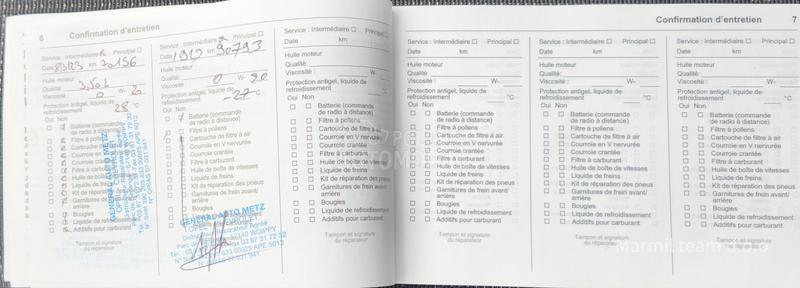 6 Confirmation d'entretien
Service : Intermédiaire Principal
Date km 70156
Huile moteur
Qualité
Viscosité : 0 W- 20
Protection antigel, liquide de
refroidissement 28 °C
Oui Non
Batterie (commande
de radio à distance)
Filtre à pollens
Cartouche de filtre à air
Courroie en V nervurée
Courroie crantée
Filtre à carburant
Huile de boîte de vitesses
Liquide de freins
Kit de réparation des pneus
Garnitures de frein avant/
arrière
Bougies
Liquide de refroidissement
Additifs pour carburant
Tampon et signature
du réparateur
Service : Intermédiaire Principal
Date km 90793
Huile moteur
Qualité
Viscosité : 0 W- 20
Protection antigel, liquide de
refroidissement -27 °C
Oui Non
Batterie (commande
de radio à distance)
Filtre à pollens
Cartouche de filtre à air
Courroie en V nervurée
Courroie crantée
Filtre à carburant
Huile de boîte de vitesses
Liquide de freins
Kit de réparation des pneus
Garnitures de frein avant/
arrière
Bougies
GENERAL AUTO METZ
57140 WOIPPY
03 87 31 72 32
Service : Intermédiaire Principal
Date km
Huile moteur
Qualité
Viscosité : W-
Protection antigel, liquide de
refroidissement °C
Oui Non
Batterie (commande
de radio à distance)
Filtre à pollens
Cartouche de filtre à air
Courroie en V nervurée
Courroie crantée
Filtre à carburant
Huile de boîte de vitesses
Liquide de freins
Kit de réparation des pneus
Garnitures de frein avant/
arrière
Bougies
Liquide de refroidissement
Additifs pour carburant
Tampon et signature
du réparateur
Confirmation d'entretien 7
Service : Intermédiaire Principal
Date km
Huile moteur
Qualité
Viscosité : W-
Protection antigel, liquide de
refroidissement °C
Oui Non
Batterie (commande
de radio à distance)
Filtre à pollens
Cartouche de filtre à air
Courroie en V nervurée
Courroie crantée
Filtre à carburant
Huile de boîte de vitesses
Liquide de freins
Kit de réparation des pneus
Garnitures de frein avant/
arrière
Bougies
Liquide de refroidissement
Additifs pour carburant
Tampon et signature
du réparateur
Service : Intermédiaire Principal
Date km
Huile moteur
Qualité
Viscosité : W-
Protection antigel, liquide de
refroidissement °C
Oui Non
Batterie (commande
de radio à distance)
Filtre à pollens
Cartouche de filtre à air
Courroie en V nervurée
Courroie crantée
Filtre à carburant
Huile de boîte de vitesses
Liquide de freins
Kit de réparation des pneus
Garnitures de frein avant/
arrière
Bougies
Liquide de refroidissement
Additifs pour carburant
Tampon et signature
du réparateur
Service : Intermédiaire Principal
Date km
Huile moteur
Qualité
Viscosité : W-
Protection antigel, liquide de
refroidissement °C
Oui Non
Batterie (commande
de radio à distance)
Filtre à pollens
Cartouche de filtre à air
Courroie en V nervurée
Courroie crantée
Filtre à carburant
Huile de boîte de vitesses
Liquide de freins
Kit de réparation des pneus
Garnitures de frein avant/
arrière
Bougies
Liquide de refroidissement
Additifs pour carburant
Tampon et signature
du réparateur